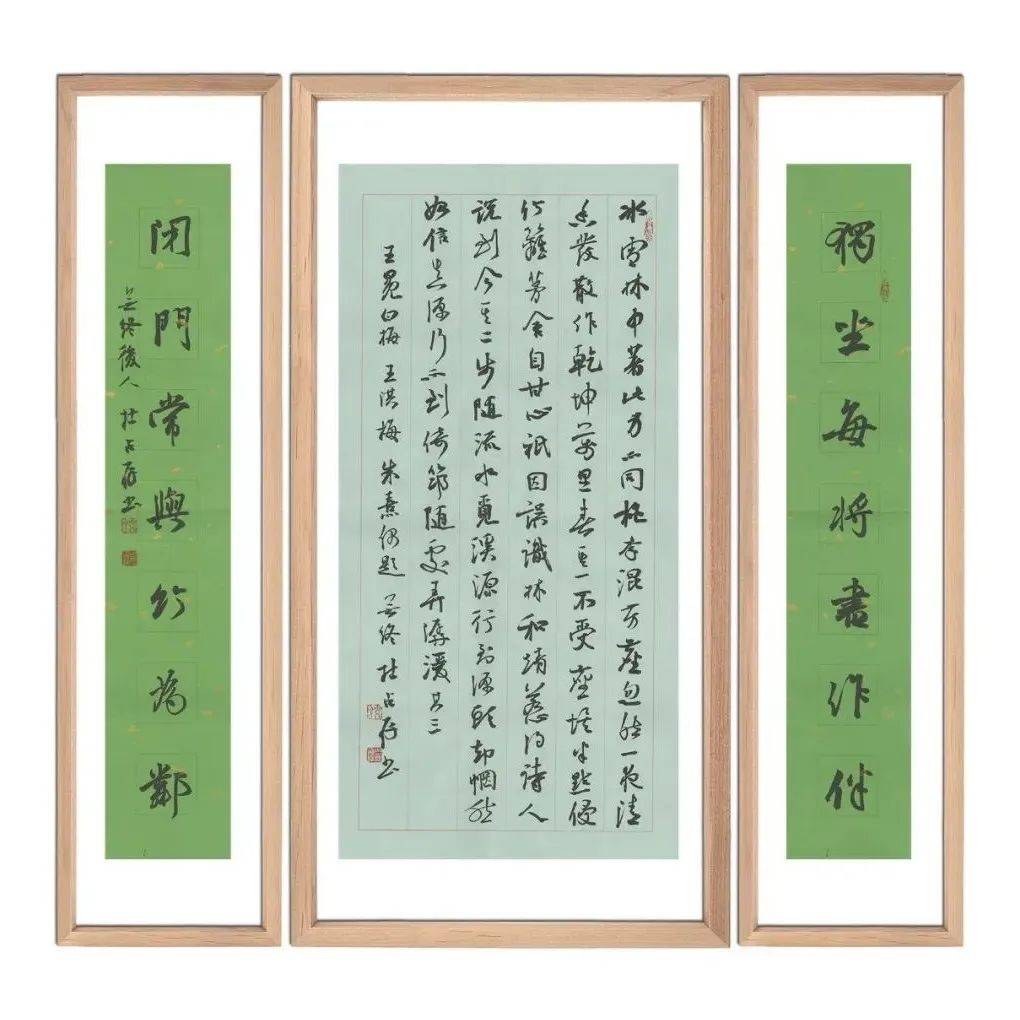 獨坐每將書作伴
冰雪林中著此身不同桃李混芳塵忽然一夜清
香發散作乾坤萬里春其一不受塵埃半點侵
竹籬茅舍自甘心祇因誤識林和靖惹得詩人
說到今其二步隨流水覓溪源行到源頭卻惘然
始信真源行不到倚筇隨處弄潺湲其三
王冕白梅 王淇梅 朱熹偶題 無終 杜占存書
閉門常與竹為鄰
無終後人 杜占存書